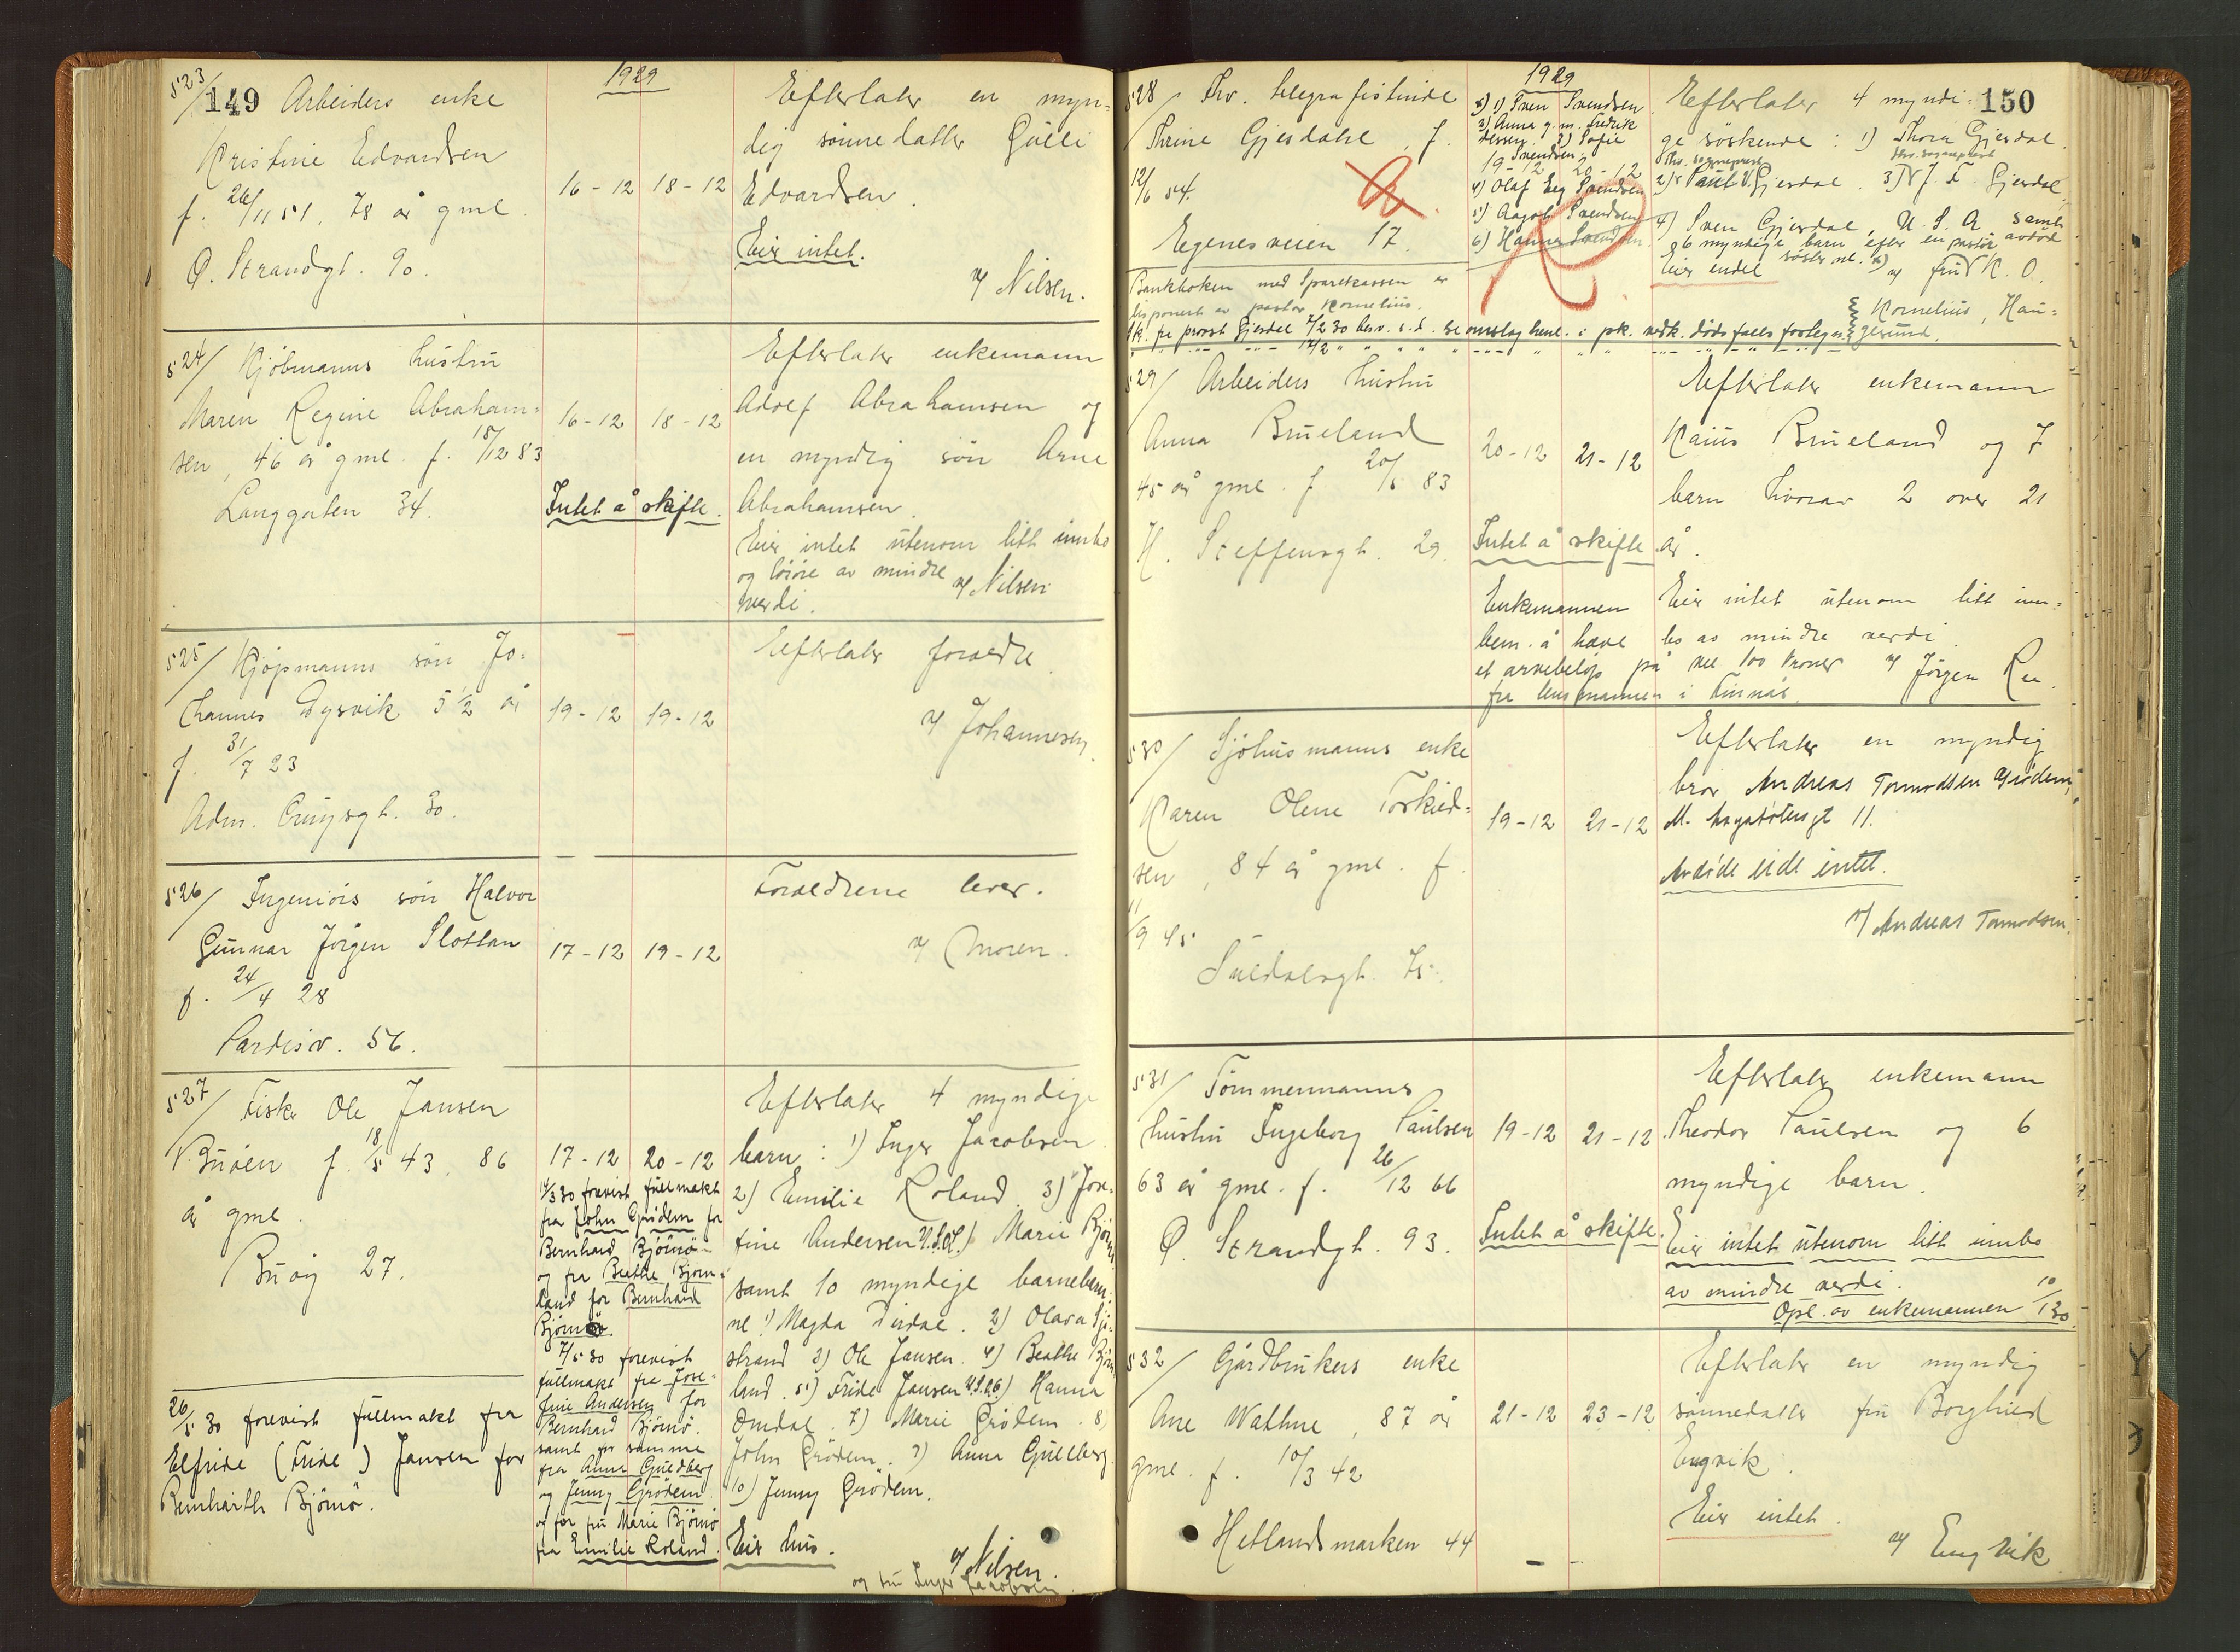 149
1929
523/ Arbeiders enke
Kristine Edvardsen
f. 26/11 51. 78 år gml.
Ø. Strandgt. 90.
16-12 18-12
Efterlater en myn-
dig sønnedatter
Edvardsen.
Eier intet.
v/ Nilsen.
524/ Kjøbmanns hustru
Maren Regine Abraham-
sen, 46 år gml. f. 18/12 83
Langgaten 34.
16-12 18-12
Intet å skifte.
Efterlater enkemann
Adolf Abrahamsen og
en myndig søn Arne
Abrahamsen.
Eier intet utenom litt innbo
og løsøre av mindre
verdi.
v/ Nilsen
525/ Kjøpmanns søn Jo-
hannes Dysvik 5 1/2 år
f. 31/7 23
Adm. Cruysgt. 30.
19-12 19-12
Efterlater foreldre.
v/ Johannesen.
526/ Ingeniørs søn Halvor
Gunnar Jørgen Slottan
f. 24/4 28
Vardesv. 56.
17-12 19-12
Foreldrene lever.
v/ Moren.
527/ Fisker Ole Jansen
Buøen f. 18/5 43. 86
år gml.
Buøy 27.
26/5 30 forevist fullmakt fra
Elfride (Fride) Jansen for
Bernharth Bjørnø.
17-12 20-12
14/3 30 forevist fullmakt
fra John Grødem for
Bernhard Bjørnø
og fra Beathe Bjørn-
land for Bernhard
Bjørnø.
7/5 30 forevist
fullmakt fra Jose-
fine Andersen for
Bernhard Bjørnø.
samt for samme
fra Anna Guldberg
og Jenny Grødem
og for fru Marie Bjørnø
fra Emilie Roland.
Efterlater 4 myndige
barn: 1) Inger Jacobsen.
2) Emilie Roland. 3) Jose-
fine Andersen U.S.A. 4) Marie Bjørnø
samt 10 myndige barnebarn:
nl. 1) Magda Tirdal. 2) Olava Sji-
strand 3) Ole Jansen. 4) Beathe Bjørn
land. 5) Fride Jansen U.S.A. 6) Hanna
Omdal. 7) Marie Grødem. 8)
John Grødem. 9) Anna Gullberg.
10) Jenny Grødem.
Eier hus.
v/ Nilsen.
og fru Inger Jacobsen.
150
1929
528/ Fhv. telegrafistinde
Thrine Gjesdahl, f.
12/6 54.
Egenesveien 17.
Bankboken med Sparekassen er
disponert av pastor Kornelius.
Sk. fra prost Gjesdal 7/2 30 besv. s.d. Se omslag henl. i pk. vedk. dødsfalls forlegn.
x) 1) Sven Svendsen
2) Anna g.m. Fredrik
3) Sofie
Svendsen.
19-12 20-12
4) Olaf Eeg Svendsen
5) Aagot Svendsen
6) Hanna Svendsen
Efterlater 4 myndi-
ge søskende: 1) Thora Gjesdal.
fhv. sogneprest
2) Paul V. Gjesdal. 3) J. F. Gjesdal
4) Sven Gjesdal, U.S.A. samt
6 myndige barn efter en avdød
søster nl. x)
Eier endel
v/ fru K. O.
Kornelius, Hau-
gesund.
529/ Arbeiders hustru
Anna Brueland
45 år gml. f 20/5 83
H. Steffensgt. 29
20-12 21-12
Intet å skifte.
Enkemannen
bem. å have
et arvebeløp på vel 100 kroner
fra lensmannen i Finnås.
Efterlater enkemann
Kaius Brueland og 7
barn hvorav 2 over 21
år.
Eier intet utenom litt inn-
bo av mindre verdi
v/ Jørgen Ree.
530/ Sjøhusmanns enke
Karen Olene Torkild-
sen, 84 år gml. f.
11/9 45
Suldalsgt. 75.
19-12 21-12
Efterlater en myndig
bror Andreas Tormodsen Grødem,
11.
Avdøde eide intet.
v/ Andreas Tormodsen.
531/ Tømmermanns
hustru Ingeborg Paulsen
63 år gml. f. 26/12 66
Ø. Strandgt. 93.
19-12 21-12
Intet å skifte.
Efterlater enkemann
Theodor Paulsen og 6
myndige barn.
Eier intet utenom litt innbo
av mindre verdi.
Opl. av enkemannen 10/1 30.
532/ Gårdbrukers enke
Ane Wathne, 87 år
gml. f. 10/3 42
Hetlandsmarken 44
21-12 23-12
Efterlater en myndig
sønnedatter fru Borghild
Engvik.
Eier intet.
v/ Engvik